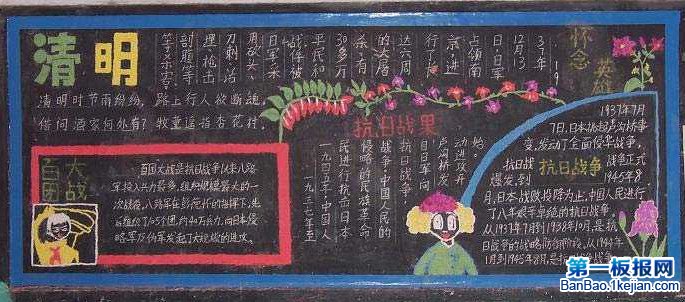 清明
清明时节雨纷纷，路上行人欲断魂。
借问酒家何处有？牧童遥指杏花村。
百团
大战
百团大战是抗日战争以来八路
军投入兵力最多，组织规模最大的一
次战役，八路军在彭德怀的指挥下，先
后组织了105个团，约40万兵力，向日本侵
略军及伪军发起了大规模的进攻。
37年
12月13
日，日军
占领南
京，进
行了长
达六周
的大屠
杀，有
30多万
平民和
战俘被
日军杀
刀刺、活
埋、枪击
抗日战果
一九三七年至
一九四五年中国人
民进行抗击日本
侵略的民族革命
战争中国人民的
抗日战争
自日军向
卢沟桥发
动进攻开
始。
怀念
英雄
1937年7月
7日，日本挑起卢沟桥事
变，发动了全面侵华战争，
抗日战
爆发，到
抗日战争
战争正式
1945年8
月，日本战败投降为止，中国人民进行
了八年艰辛卓绝的抗日战争，
从1937年7月到1938年10月，是抗
日战争的战略防御阶段，从1944年
1月到1945年8月，是抗
第一板报网
BanBao.1kejian.com